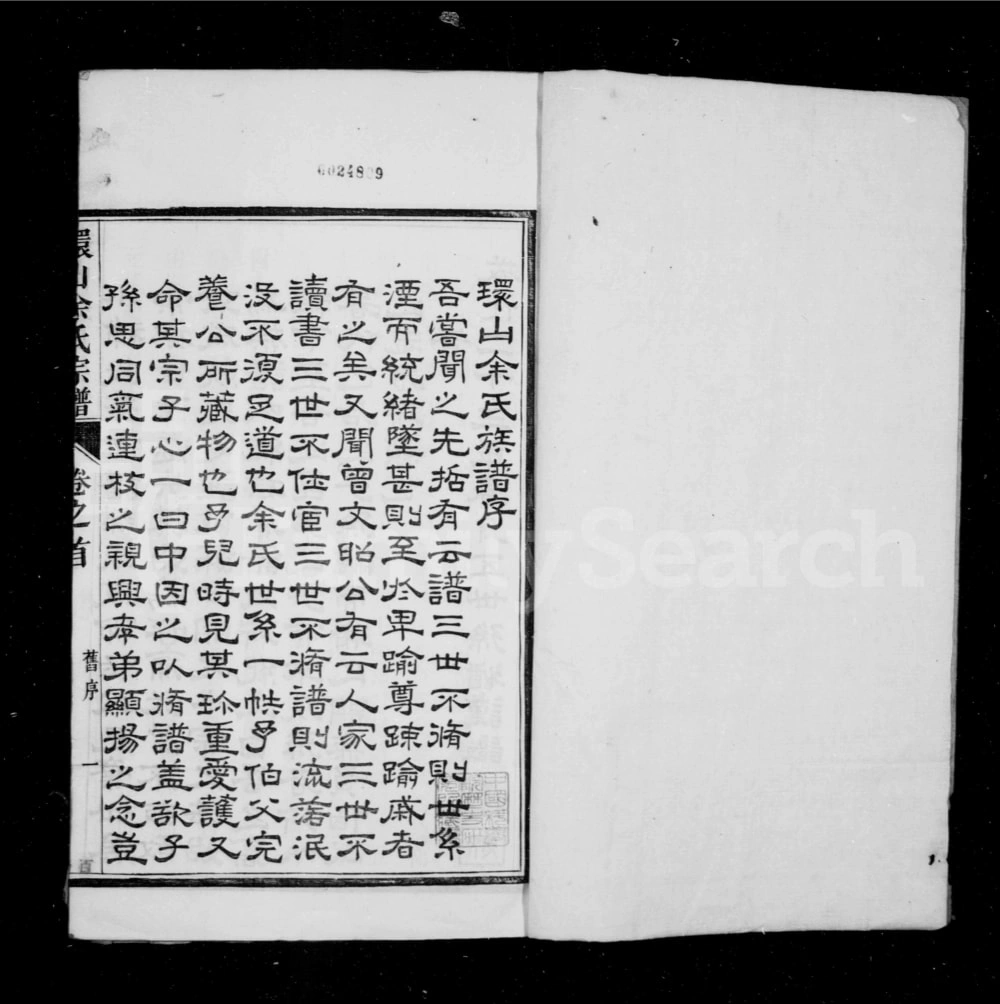 0024839
環山余氏族譜序
吾嘗聞之先括有云譜三世不脩則世系
湮而統緒墜甚則至於卑踰尊疎踰戚者
有之矣又聞曾文昭公有云人家三世不
讀書三世不仕宦三世不脩譜則流落泯
没不復足道也余氏世系一帙予伯父完
養公所藏物也予兒時見其珍重愛護又
命其宗子心一曰中因之以脩譜盖欲子
孫思同氣連枝之親興孝弟顯揚之念豈
環山余氏宗譜
卷之首
舊序
一
FamilySearch